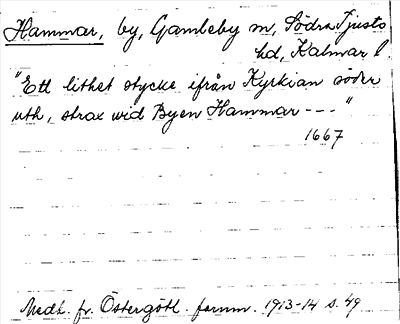 Hammar, by, Gamleby sn, Södra Tjusts
hd, Kalmar l.
"Ett lithet stycke ifrån Kyrkian söder
uth, strax wid Byen Hammar ---"
1667
Medd. fr. Östergötl. fornm. 1913-14 s. 49